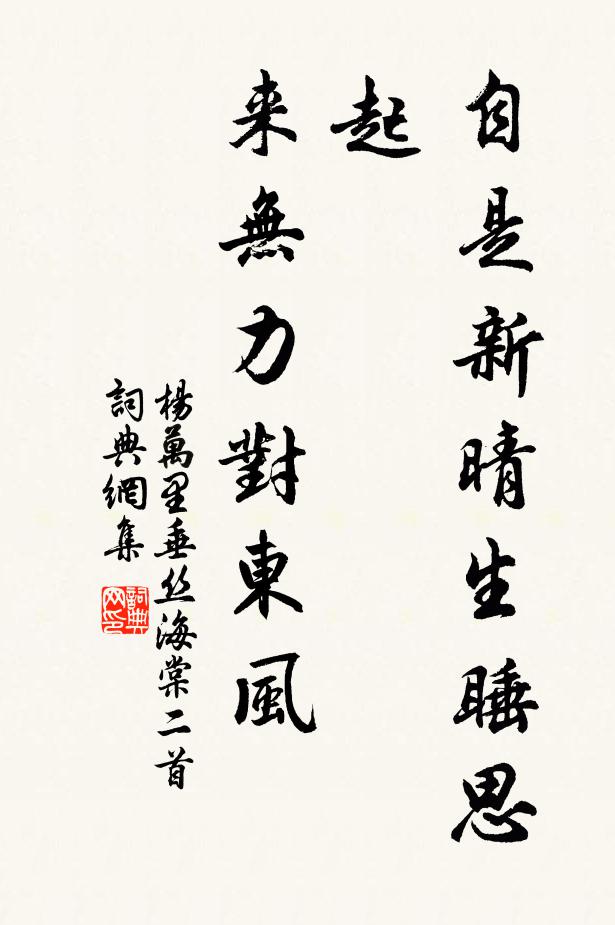 自是新晴生睡思
起
来無力對東風
楊萬里垂丝海棠二首
詞典網集
詞典网印